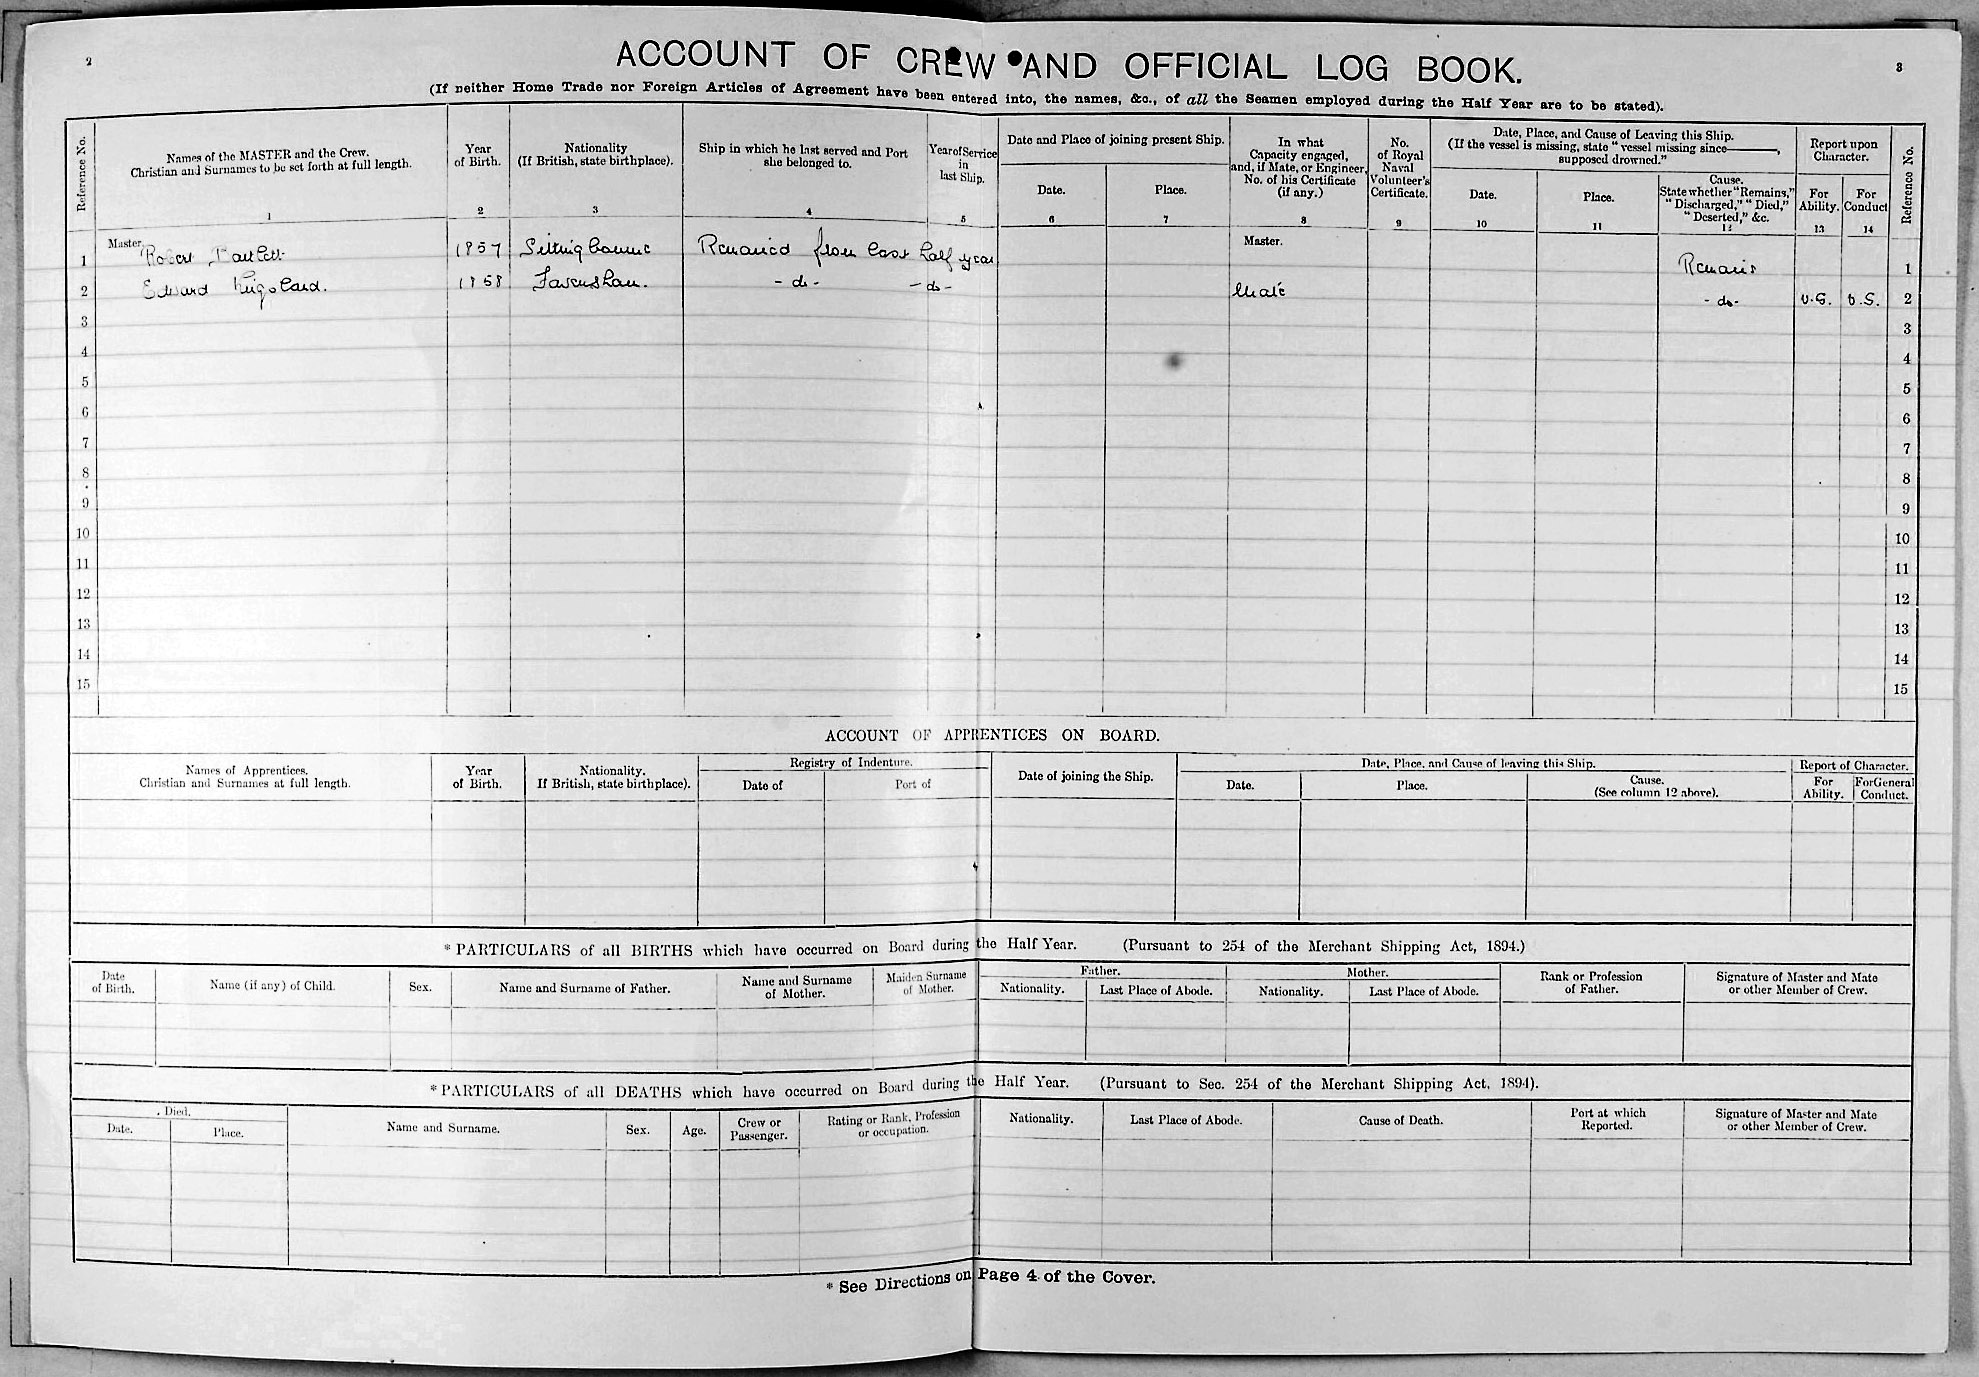 2
3
ACCOUNT OF CREW AND OFFICIAL LOG BOOK.
(If neither Home Trade nor Foreign Articles of Agreement have been entered into, the names, &c., of all the Seamen employed during the Half Year are to be stated).
Reference No.
Names of the MASTER and the Crew.
Christian and Surnames to be set forth at full length.
1
Year
of Birth.
2
Nationality
(If British, state birthplace).
3
Ship in which he last served and Port
she belonged to.
4
Year of Service
in
last Ship.
5
Date and Place of joining present Ship.
Date.
6
Place.
7
In what
Capacity engaged,
and, if Mate, or Engineer,
No. of his Certificate
(if any.)
8
No.
of Royal
Naval
Volunteer's
Certificate.
9
Date, Place, and Cause of Leaving this Ship.
(If the vessel is missing, state "vessel missing since———,
supposed drowned."
Date.
10
Place.
11
Cause.
State whether "Remains,"
"Discharged," "Died,"
"Deserted," &c.
12
Report upon
Character.
For
Ability.
13
For
Conduct
14
Reference No.
1 Master. Robert 1857 Sittingbourne Remained from last half year Master. Remains 1
2 Edward Kingsland. 1858 Faversham. - do - - do - Mate - do - V.G. V.G. 2
3 3
4 4
5 5
6 6
7 7
8 8
9 9
10 10
11 11
12 12
13 13
14 14
15 15
ACCOUNT OF APPRENTICES ON BOARD.
Names of Apprentices.
Christian and Surnames at full length.
Year
of Birth.
Nationality.
If British, state birthplace).
Registry of Indenture.
Date of
Port of
Date of joining the Ship.
Date, Place, and Cause of leaving this Ship.
Date.
Place.
Cause.
(See column 12 above).
Report of Character.
For
Ability.
For General
Conduct.
*PARTICULARS of all BIRTHS which have occurred on Board during the Half Year. (Pursuant to 254 of the Merchant Shipping Act, 1894.)
Date
of Birth.
Name (if any) of Child.
Sex.
Name and Surname of Father.
Name and Surname
of Mother.
Maiden Surname
of Mother.
Father.
Nationality.
Last Place of Abode.
Mother.
Nationality.
Last Place of Abode.
Rank or Profession
of Father.
Signature of Master and Mate
or other Member of Crew.
*PARTICULARS of all DEATHS which have occurred on Board during the Half Year. (Pursuant to Sec. 254 of the Merchant Shipping Act, 1894).
Died.
Date.
Place.
Name and Surname.
Sex.
Age.
Crew or
Passenger.
Rating or Rank, Profession
or occupation.
Nationality.
Last Place of Abode.
Cause of Death.
Port at which
Reported.
Signature of Master and Mate
or other Member of Crew.
* See Directions on Page 4 of the Cover.